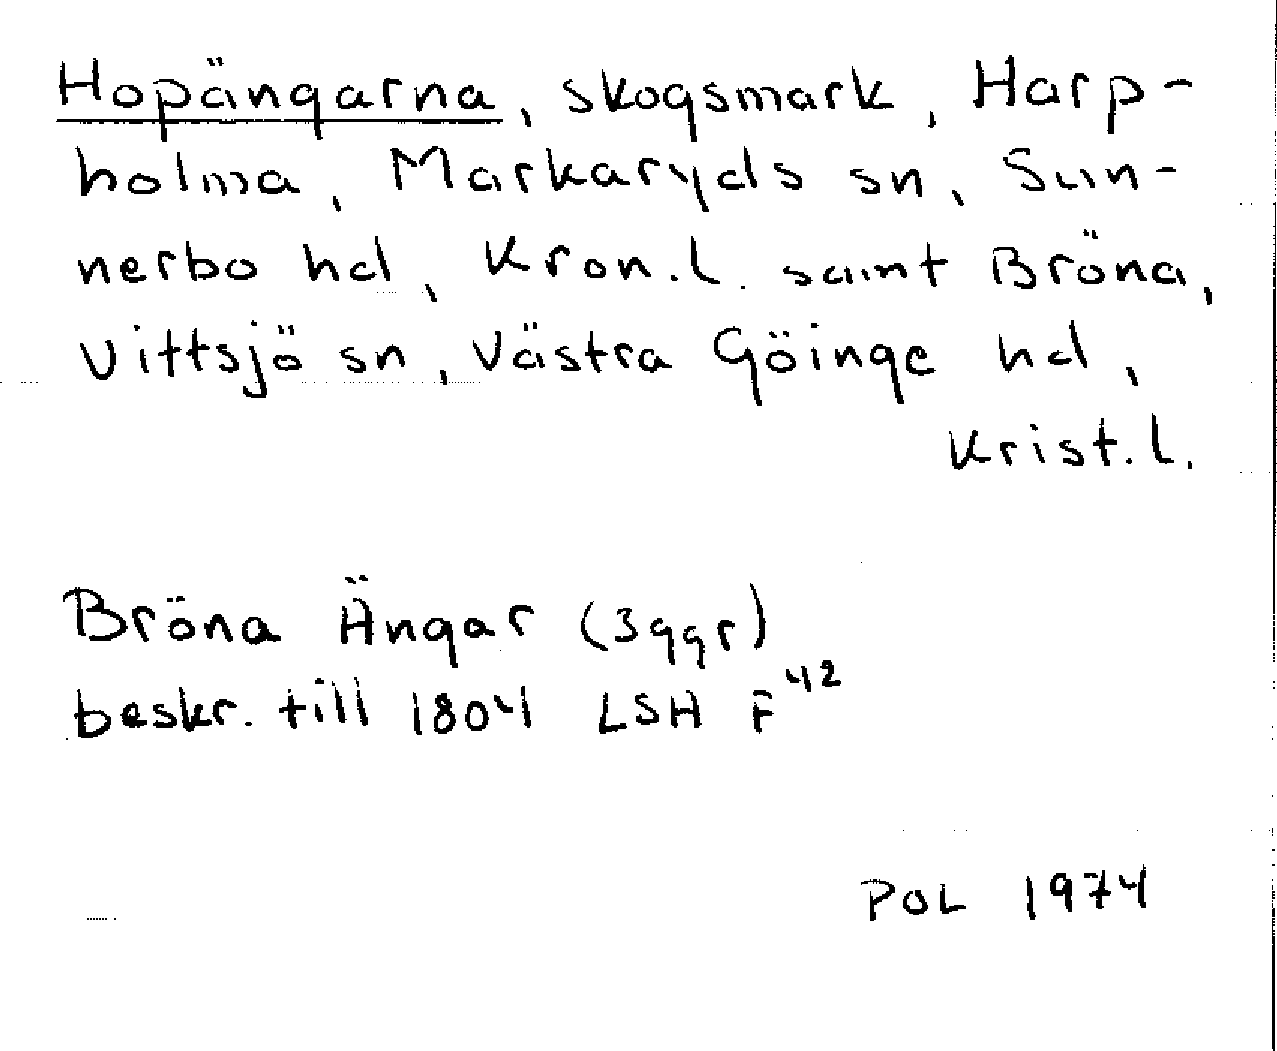 Hopängarna, skogsmark, Harp-
holma, Markaryds sn, Sun-
nerbo hd, Kron.l. samt Bröna,
Vittsjö sn, Västra Göinge hd,
Krist.l.
Bröna Ängar (3ggr)
beskr. till 1804 LSH F⁴²
POL 1974